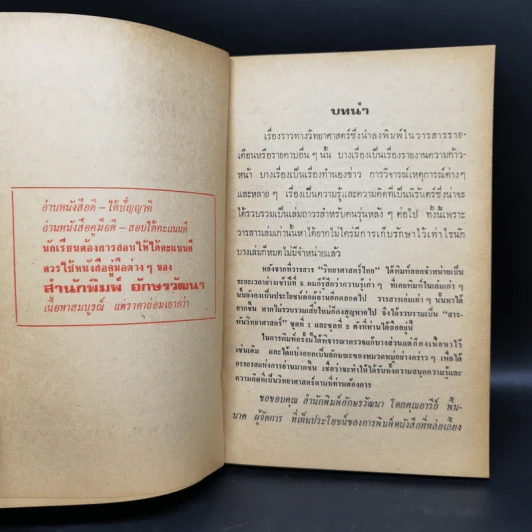 อ่านหนังสือดี – ได้ปัญญาดี
อ่านหนังสือคู่มือดี – สอบได้คะแนนดี
นักเรียนต้องการสอบให้ได้คะแนนดี
ควรใช้หนังสือคู่มือต่าง ๆ ของ
สำนักพิมพ์ อักษรวัฒนา
เนื้อหาสมบูรณ์ แต่ราคาย่อมเยากว่า
บทนำ
เรื่องราวทางวิทยาศาสตร์ซึ่งนำลงพิมพ์ในวารสารราย-
เดือนหรือรายคาบอื่น ๆ นั้น บางเรื่องเป็นเรื่องรายงานความก้าว-
หน้า บางเรื่องเป็นเรื่องทำนองข่าว การวิจารณ์เหตุการณ์ต่างๆ
และหลาย ๆ เรื่องเป็นความรู้และความคิดที่เป็นนิรันดร์ซึ่งน่าจะ
ได้รวบรวมเป็นเล่มถาวรสำหรับคนรุ่นหลัง ๆ ต่อไป ทั้งนี้เพราะ
วารสารเล่มเก่านั้นหาได้ยากไม่ใคร่มีการเก็บรักษาไว้เท่าไรนัก
บางเล่มก็หมดไม่มีจำหน่ายแล้ว
หลังจากที่วารสาร “วิทยาศาสตร์ไทย” ได้พิมพ์ออกจำหน่ายเป็น
ระยะเวลาย่างเข้าปีที่ 5 ผมก็รู้สึกว่าความรู้เก่า ๆ ที่เคยพิมพ์มาในเล่มเก่า ๆ
นั้นยังคงเป็นประโยชน์ต่อผู้อ่านอีกตลอดไป วารสารเล่มเก่า ๆ นั้นหาได้
ยากขึ้น หากไม่รวบรวมเสียใหม่ก็คงสูญหายไป จึงได้รวบรวมเป็น “สาร-
พันวิทยาศาสตร์” ชุดที่ 1 และชุดที่ 2 ดังที่ท่านได้ถืออยู่นี้
ในการพิมพ์ครั้งนี้ได้พิจารณาตรวจแก้บางส่วนแต่ก็คงเนื้อหาไว้
เช่นเดิม และได้แบ่งออกเป็นลักษณะของหมวดหมู่อย่างคร่าว ๆ เพื่อได้
อรรถรสแห่งการอ่านมากขึ้น เชื่อว่าจะทำให้ได้รับทั้งความสนุกความรู้และ
ความคิดที่เป็นวิทยาศาสตร์ตามที่ท่านต้องการ
ขอขอบคุณ สำนักพิมพ์อักษรวัฒนา โดยคุณอารีย์ พื้น-
นาค ผู้จัดการ ที่เห็นประโยชน์ของการพิมพ์หนังสือที่หล่อเลี้ยง